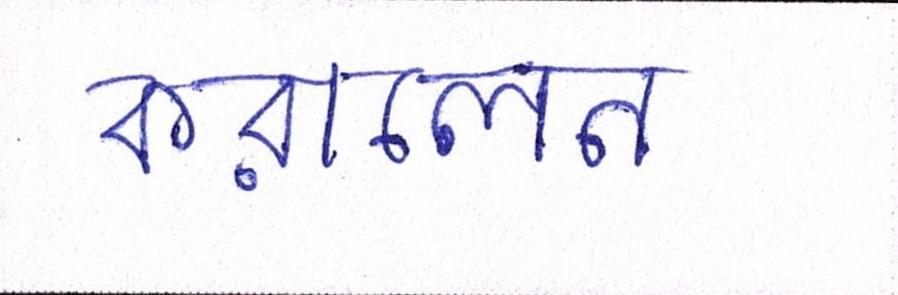 করালেন